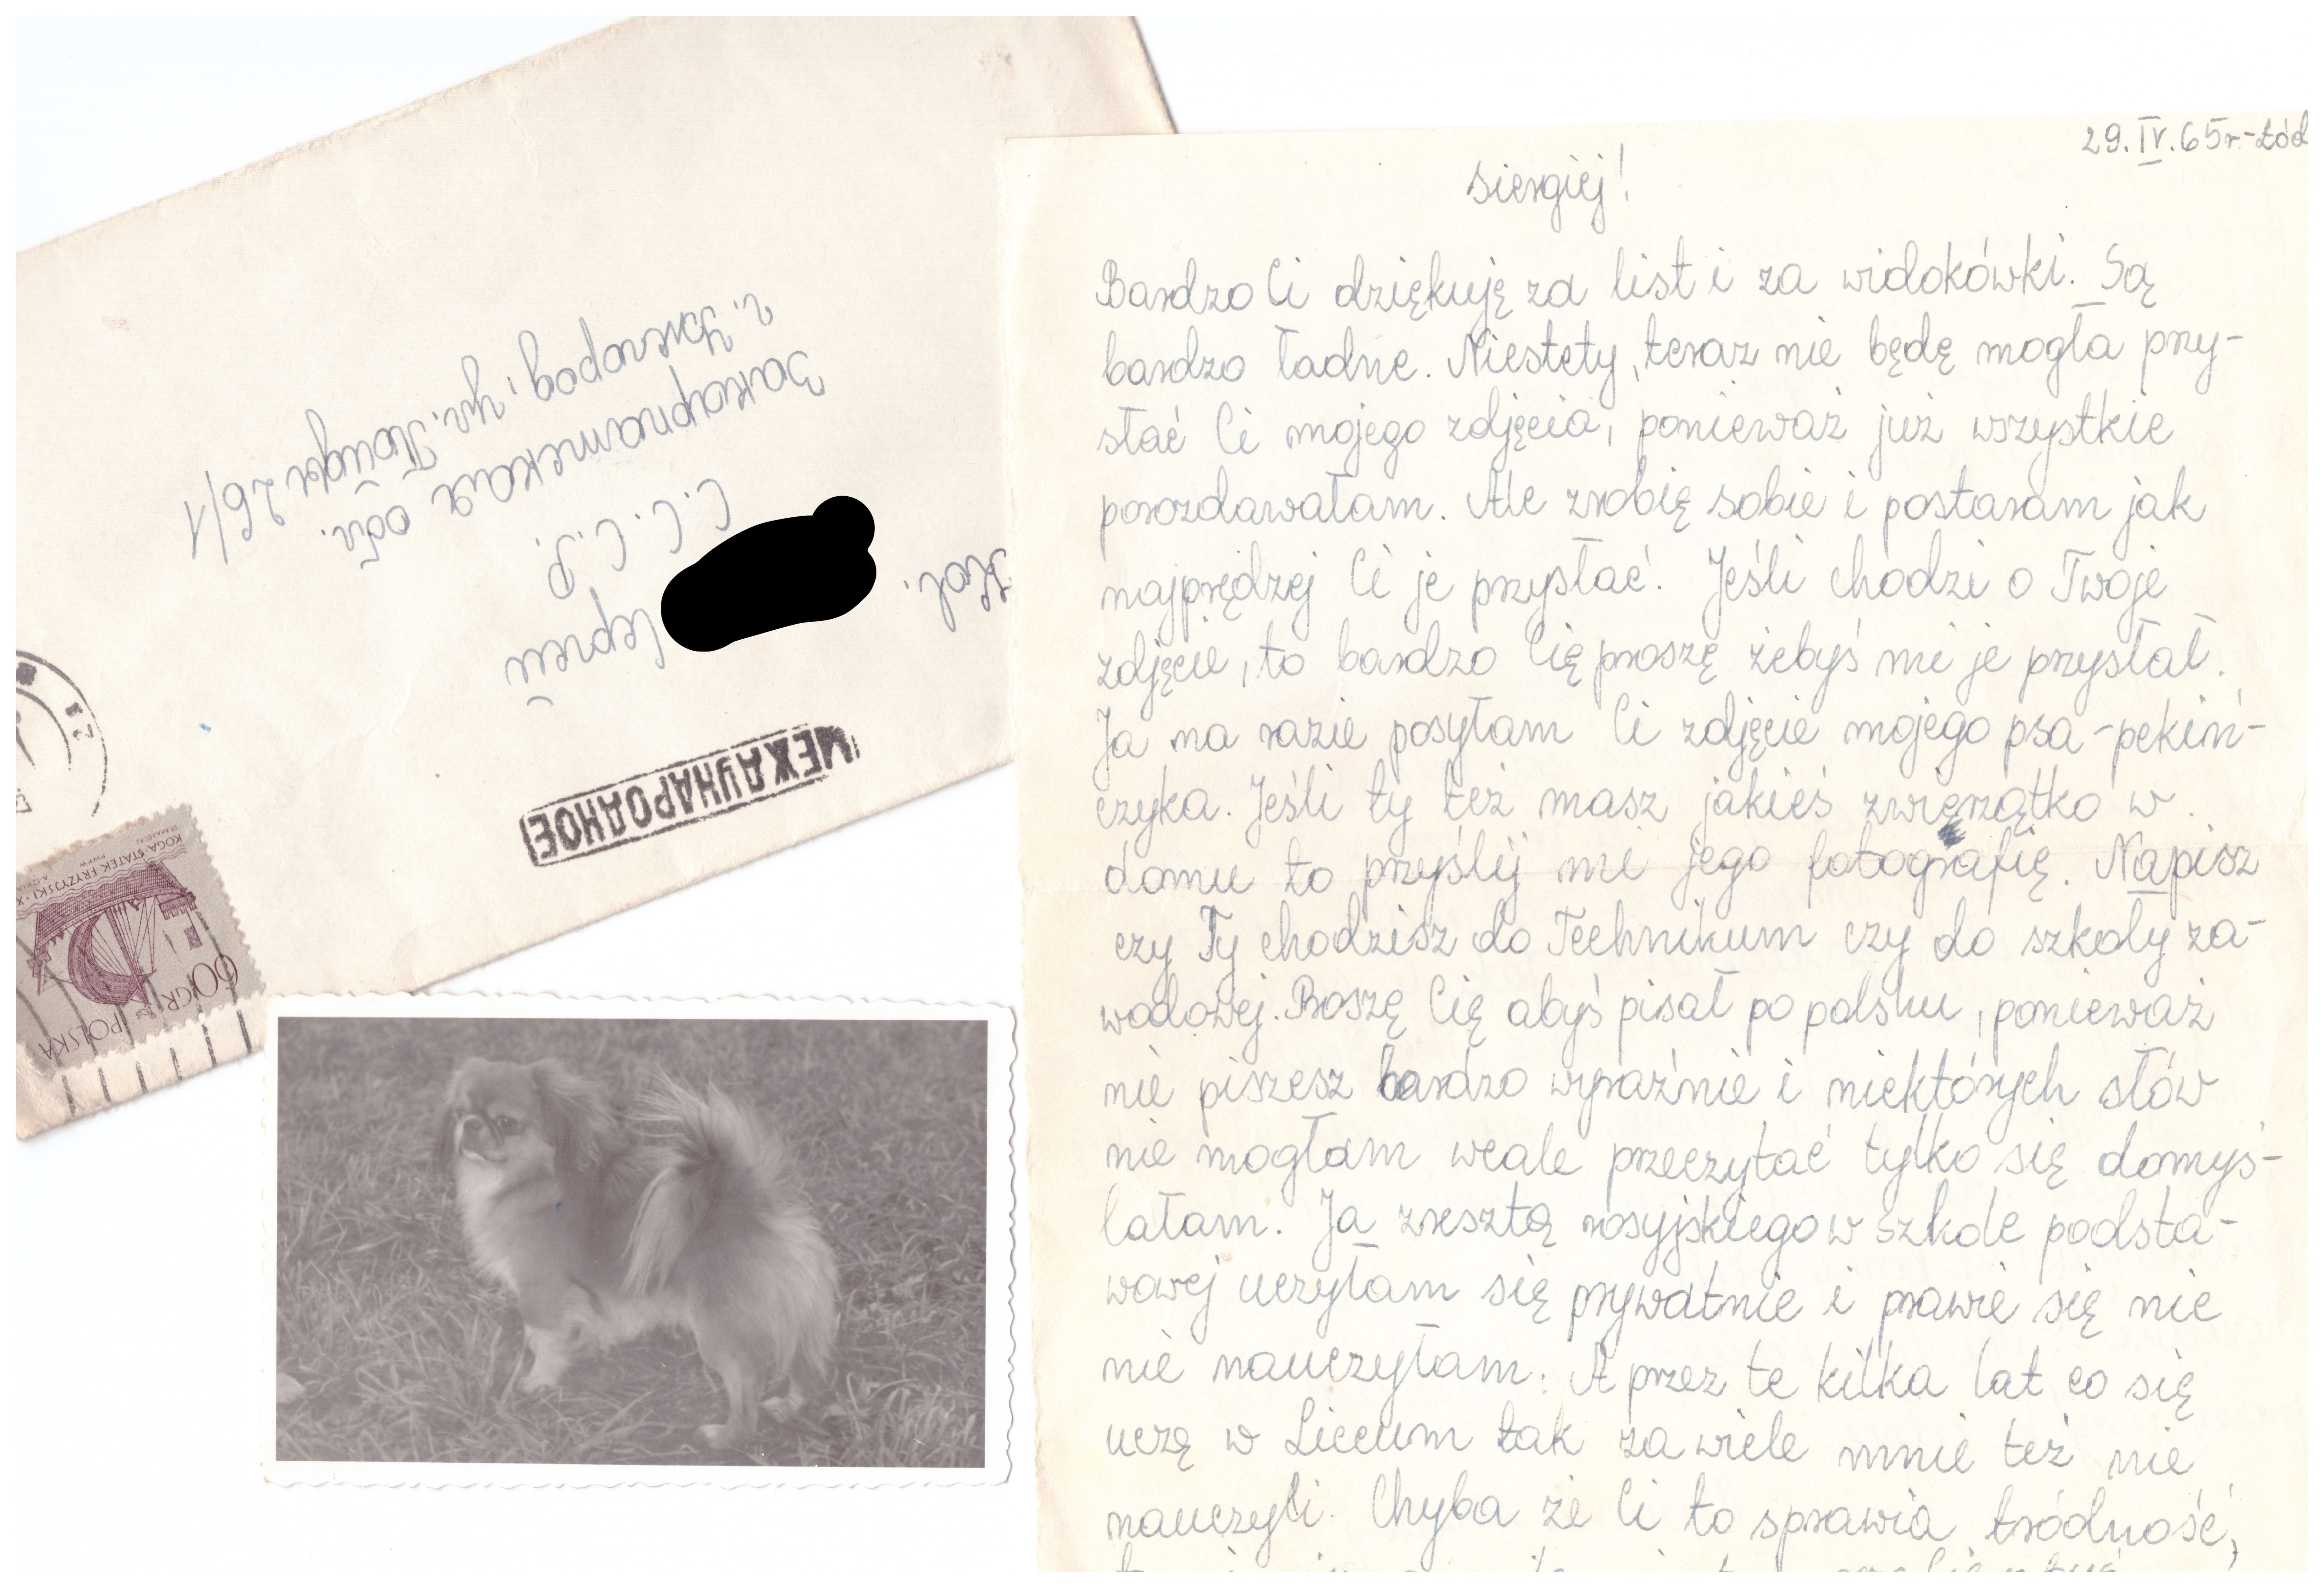 29.IV.65r.-Łód
Siergiej!
Bardzo Ci dziękuję za list i za widokówki. Są
bardzo ładne. Niestety, teraz nie będę mogła przy-
słać Ci mojego zdjęcia, ponieważ już wszystkie
porozdawałam. Ale zrobię sobie i postaram jak
najprędzej Ci je przysłać. Jeśli chodzi o Twoje
zdjęcie, to bardzo Cię proszę żebyś mi je przysłał.
Ja na razie posyłam Ci zdjęcie mojego psa-pekiń-
czyka. Jeśli ty też masz jakieś zwierzątko w
domu to przyślij mi jego fotografię. Napisz
czy Ty chodzisz do Technikum czy do szkoły za-
wodowej. Proszę Cię abyś pisał po polsku, ponieważ
nie piszesz bardzo wyraźnie i niektórych słów
nie mogłam wcale przeczytać tylko się domyś-
lałam. Ja zresztą rosyjskiego w szkole podsta-
wowej uczyłam się prywatnie i prawie się nic
nie nauczyłam. A przez te kilka lat co się
uczę w Liceum tak za wiele mnie też nie
nauczyli. Chyba że Ci to sprawia tródność,
г. Ужгород, ул. Победы 26/1
Закарпатская обл.
С.С.С.Р.
Сергей
МЕЖДУНАРОДНОЕ
KOGA STATEK FRYZYJSKI
60 GR
POLSKA
21